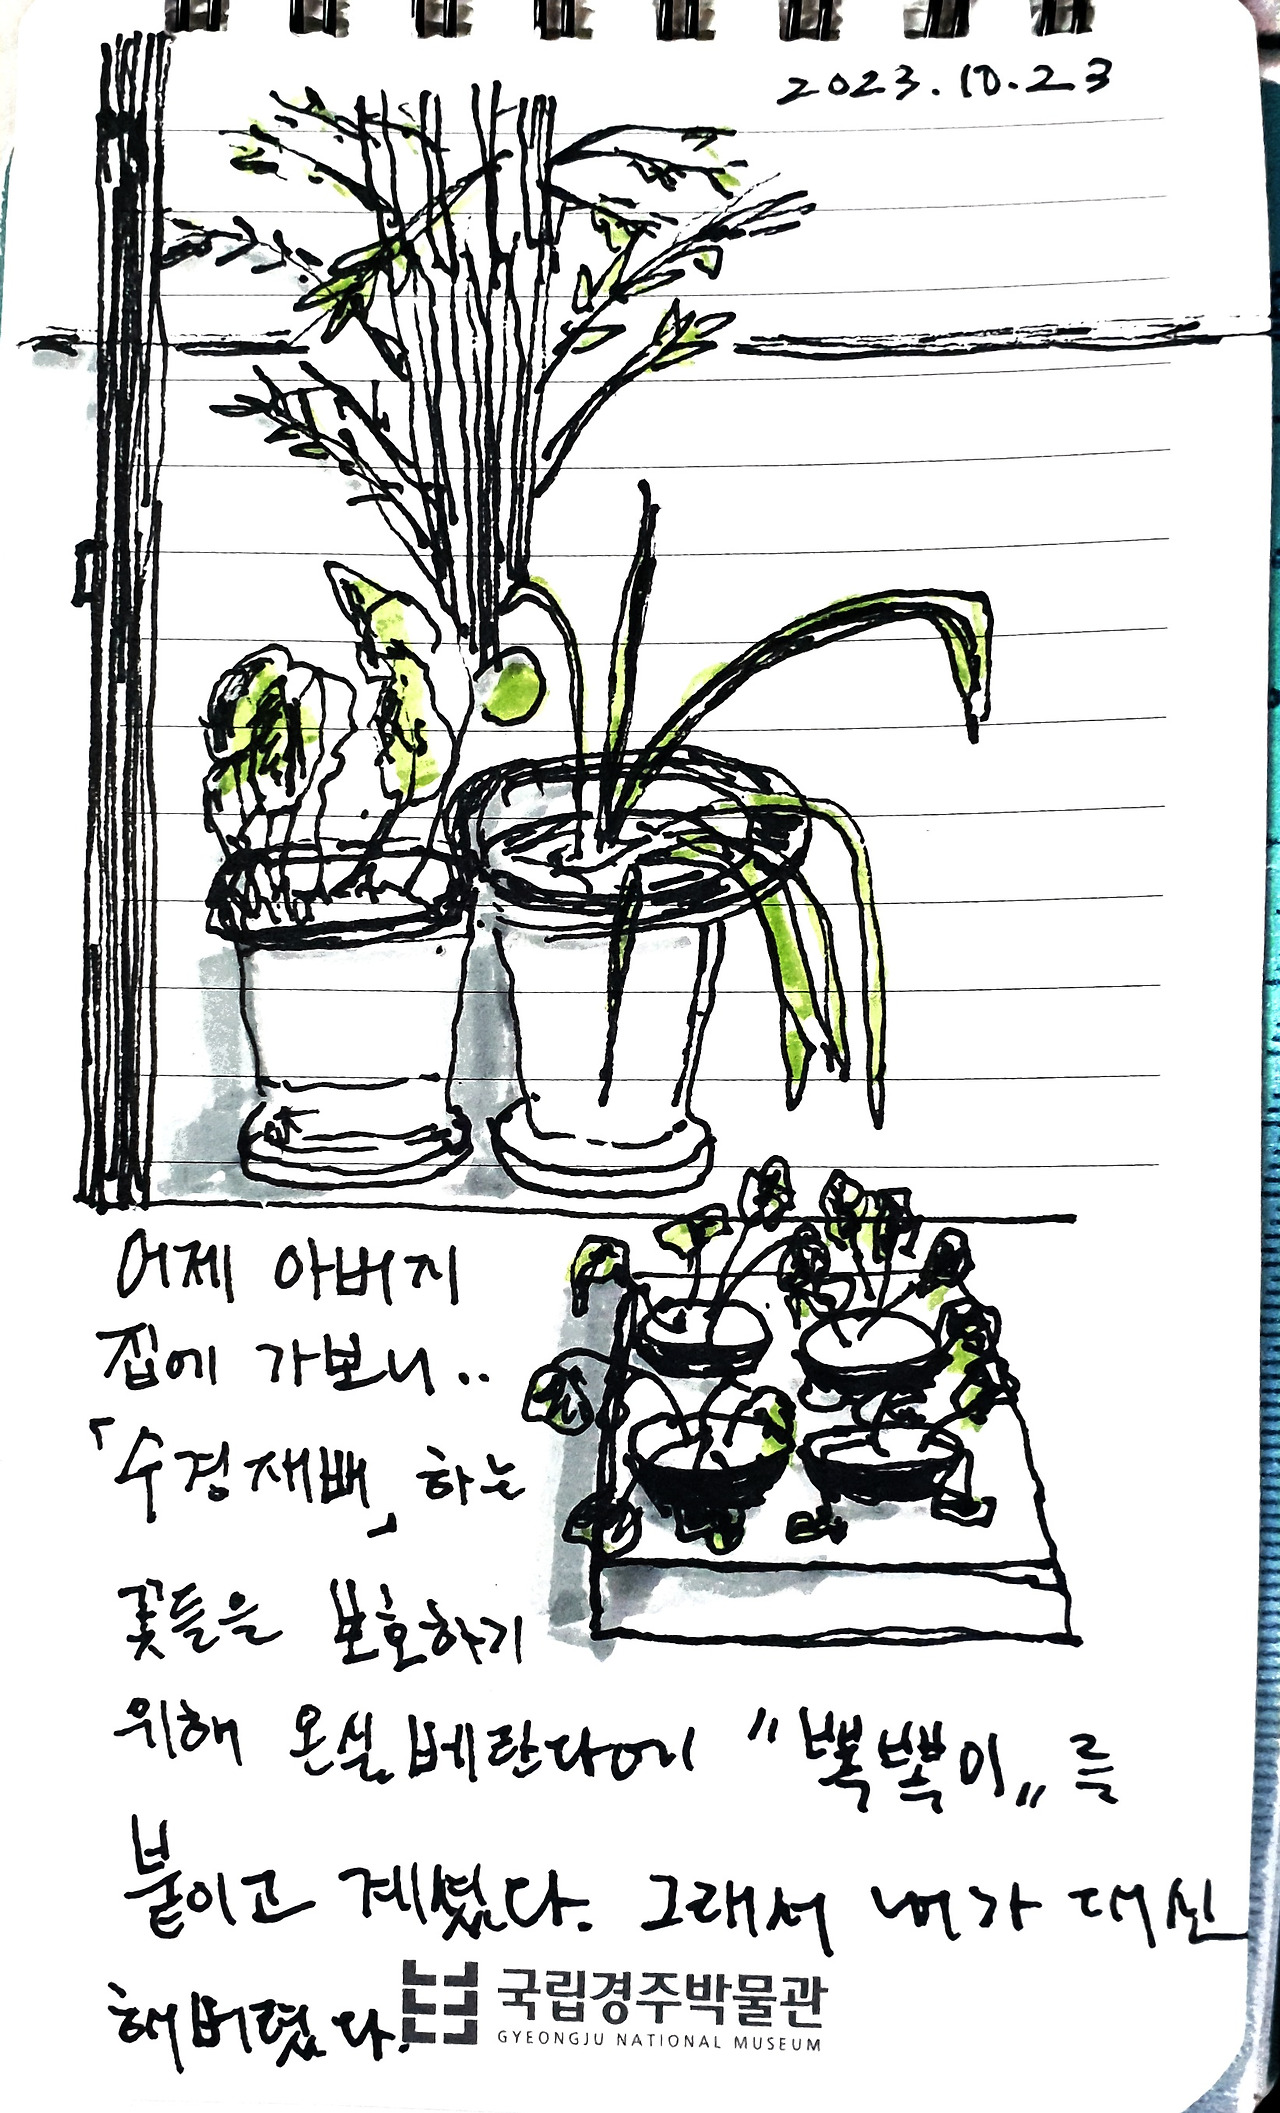 2023.10.23
어제 아버지
집에 가보니..
「수경재배」 하는
꽃들을 보호하기
위해 온실 베란다에 "뽁뽁이"를
붙이고 계셨다. 그래서 내가 대신
해버렸다.
국립경주박물관
GYEONGJU NATIONAL MUSEUM